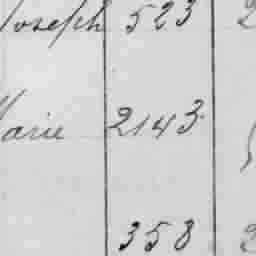 Joseph 523 2
Marie 2143
358